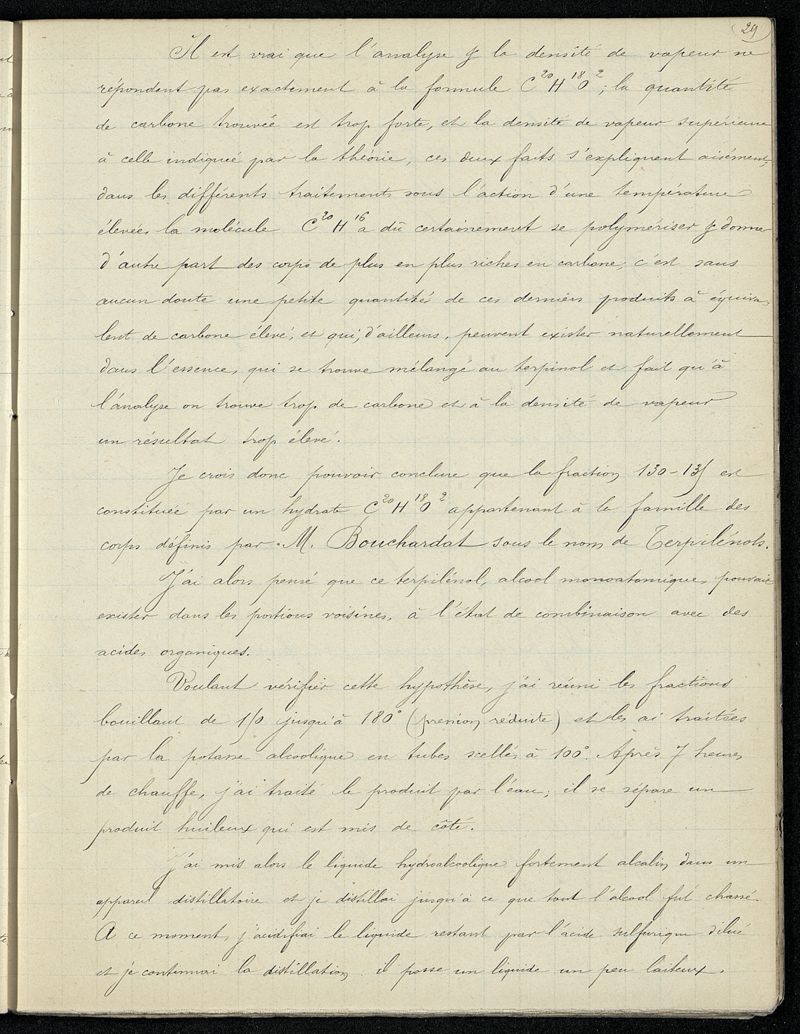 29
Il est vrai que l'analyse & la densité de vapeur ne
répondent pas exactement à la formule C²⁰H¹⁸O²; la quantité
de carbone trouvée est trop forte, et la densité de vapeur supérieure
à celle indiquée par la théorie, ces deux faits s'expliquent aisément;
dans les différents traitements sous l'action d'une température
élevée la molécule C²⁰H¹⁶ a dû certainement se polymériser & donner
d'autre part des corps de plus en plus riches en carbone; c'est sans
aucun doute une petite quantités de ces derniers produits à équiva-
lent de carbone élevé, et qui, d'ailleurs, peuvent exister naturellement
dans l'essence, qui se trouve mélangé au terpinol et fait qu'à
l'analyse on trouve trop de carbone et à la densité de vapeur
un résultat trop élevé.
Je crois donc pouvoir conclure que la fraction 130-135 est
constituée par un hydrate C²⁰H¹⁸O² appartenant à la famille des
corps définis par M. Bouchardat sous le nom de Terpilénols.
J'ai alors pensé que ce terpilénol, alcool monoatomique, pouvait
exister dans les portions voisines, à l'état de combinaison avec des
acides organiques.
Voulant vérifier cette hypothèse, j'ai réuni les fractions
bouillant de 150 jusqu'à 180° (pression réduite) et les ai traitées
par la potasse alcoolique en tubes scellés à 100°. Après 7 heures
de chauffe, j'ai traité le produit par l'eau, il se sépare un
produit huileux qui est mis de côté.
J'ai mis alors le liquide hydroalcoolique fortement alcalin dans un
appareil distillatoire et je distillai jusqu'à ce que tout l'alcool fut chassé.
A ce moment, j'acidifiai le liquide restant par l'acide sulfurique dilué
et je continuai la distillation il passe un liquide un peu laiteux.